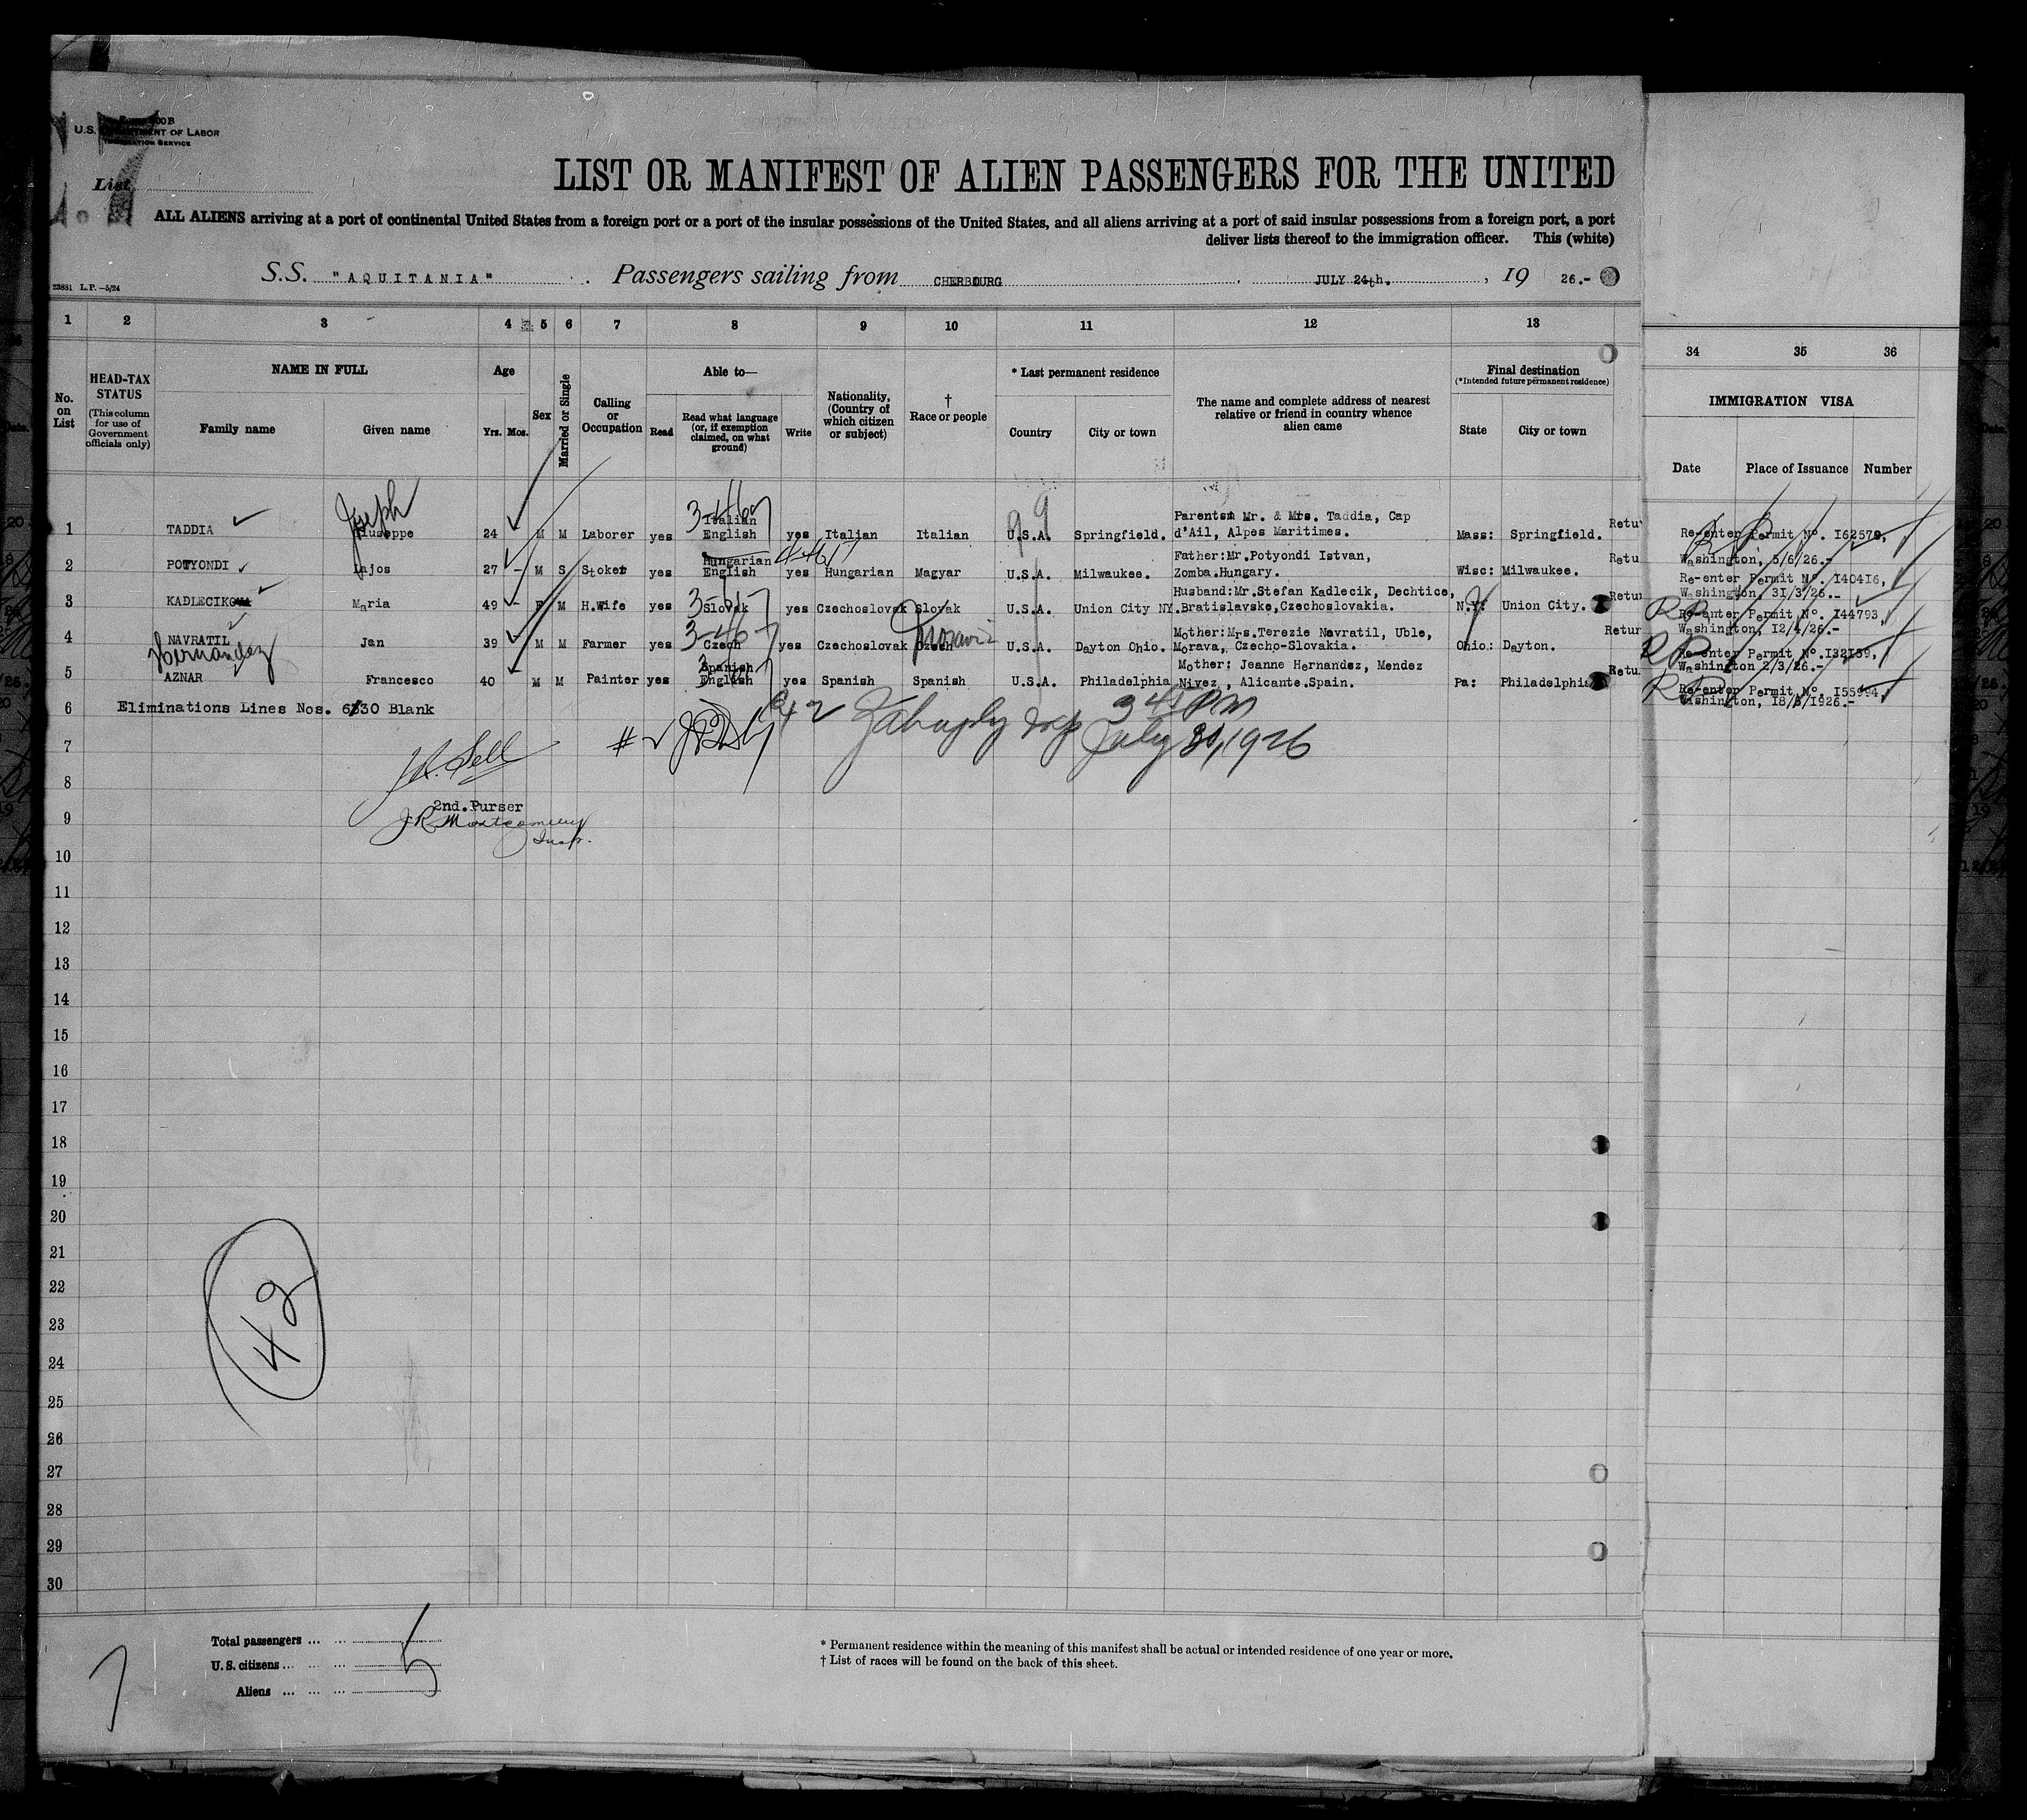 U.S. DEPARTMENT OF LABOR
IMMIGRATION SERVICE
List
LIST OR MANIFEST OF ALIEN PASSENGERS FOR THE UNITED
ALL ALIENS arriving at a port of continental United States from a foreign port or a port of the insular possessions of the United States, and all aliens arriving at a port of said insular possessions from a foreign port, a port
deliver lists thereof to the immigration officer. This (white)
S.S. "AQUITANIA" Passengers sailing from CHERBOURG JULY 24th. , 19 26.-
23881 L.P.-5/24
1 2 3 4 5 6 7 8 9 10 11 12 13 34 35 36
No. on List
HEAD-TAX STATUS (This column for use of Government officials only)
NAME IN FULL
Family name Given name
Age
Yrs. Mos.
Sex
Married or Single
Calling or Occupation
Able to—
Read Read what language (or, if exemption claimed, on what ground) Write
Nationality, (Country of which citizen or subject)
† Race or people
* Last permanent residence
Country City or town
The name and complete address of nearest relative or friend in country whence alien came
Final destination
(*Intended future permanent residence)
State City or town
IMMIGRATION VISA
Date Place of Issuance Number
Joseph
1 TADDIA Giuseppe 24 M M Laborer yes Italian English yes Italian Italian U.S.A. Springfield. Parents: Mr. & Mrs. Taddia, Cap d'Ail, Alpes Maritimes. Mass: Springfield. Retu Re-enter Permit No. I62579, Washington, 5/6/26.-
2 POTYONDI Lajos 27 - M S Stoker yes Hungarian English yes Hungarian Magyar U.S.A. Milwaukee. Father:Mr.Potyondi Istvan, Zomba.Hungary. Wisc: Milwaukee. Retu Re-enter Permit No. I40416, Washington, 3I/3/26.-
3 KADLECIKOVA Maria 49 - F M H.Wife yes Slovak yes Czechoslovak Slovak U.S.A. Union City NY. Husband:Mr.Stefan Kadlecik, Dechtice, Bratislavske,Czechoslovakia. N.Y: Union City. Retur Re-enter Permit No. I44793, Washington, I2/4/26.-
4 NAVRATIL Jan 39 M M Farmer yes Czech yes Czechoslovak Czech U.S.A. Dayton Ohio. Mother:Mrs.Terezie Navratil, Uble, Morava, Czecho-Slovakia. Ohio: Dayton. Retur Re-enter Permit No.I32I59, Washington 2/3/26.-
Hernandez
5 AZNAR Francesco 40 M M Painter yes Spanish English yes Spanish Spanish U.S.A. Philadelphia Mother: Jeanne Hernandez, Mendez Nivez, Alicante.Spain. Pa: Philadelphia Retu. Re-enter Permit No. I55994, Washington, I8/5/1926.-
6 Eliminations Lines Nos. 6/30 Blank
3 45 PM
7 July 30, 1926
8
2nd. Purser
9 J R Montgomery
Insp.
10
11
12
13
14
15
16
17
18
19
20
21
22
23
24
25
26
27
28
29
30
42
Total passengers ... ... 5
U.S. citizens ... ... ...
Aliens ... ... ...
7
* Permanent residence within the meaning of this manifest shall be actual or intended residence of one year or more.
† List of races will be found on the back of this sheet.